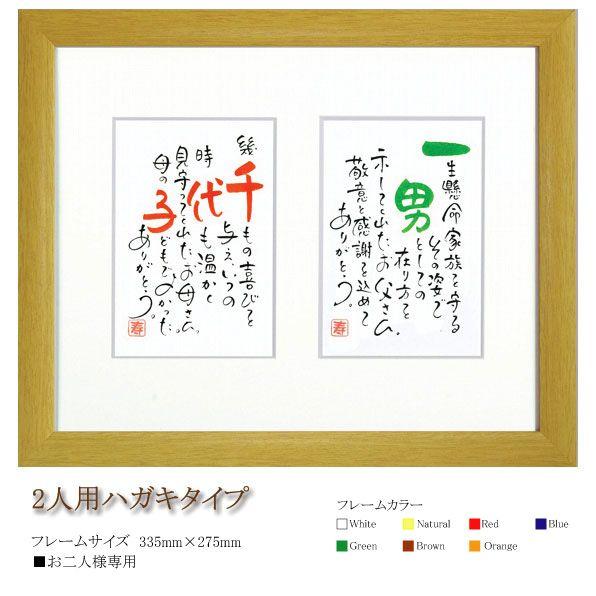 一生懸命家族を守る
その姿で
男としての
在り方を
示してくれたお父さん。
敬意と感謝を込めて
ありがとう。
寿
幾千もの喜びを
与え、いつの
時代も温かく
見守ってくれたお母さん。
母の子どもでよかった。
ありがとう。
寿
2人用ハガキタイプ
フレームサイズ 335mm×275mm
■お二人様専用
フレームカラー
White Natural Red Blue
Green Brown Orange